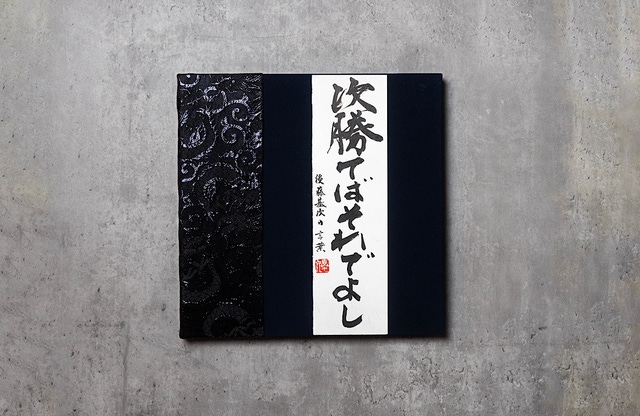 次勝てばそれでよし
後藤基次の言葉